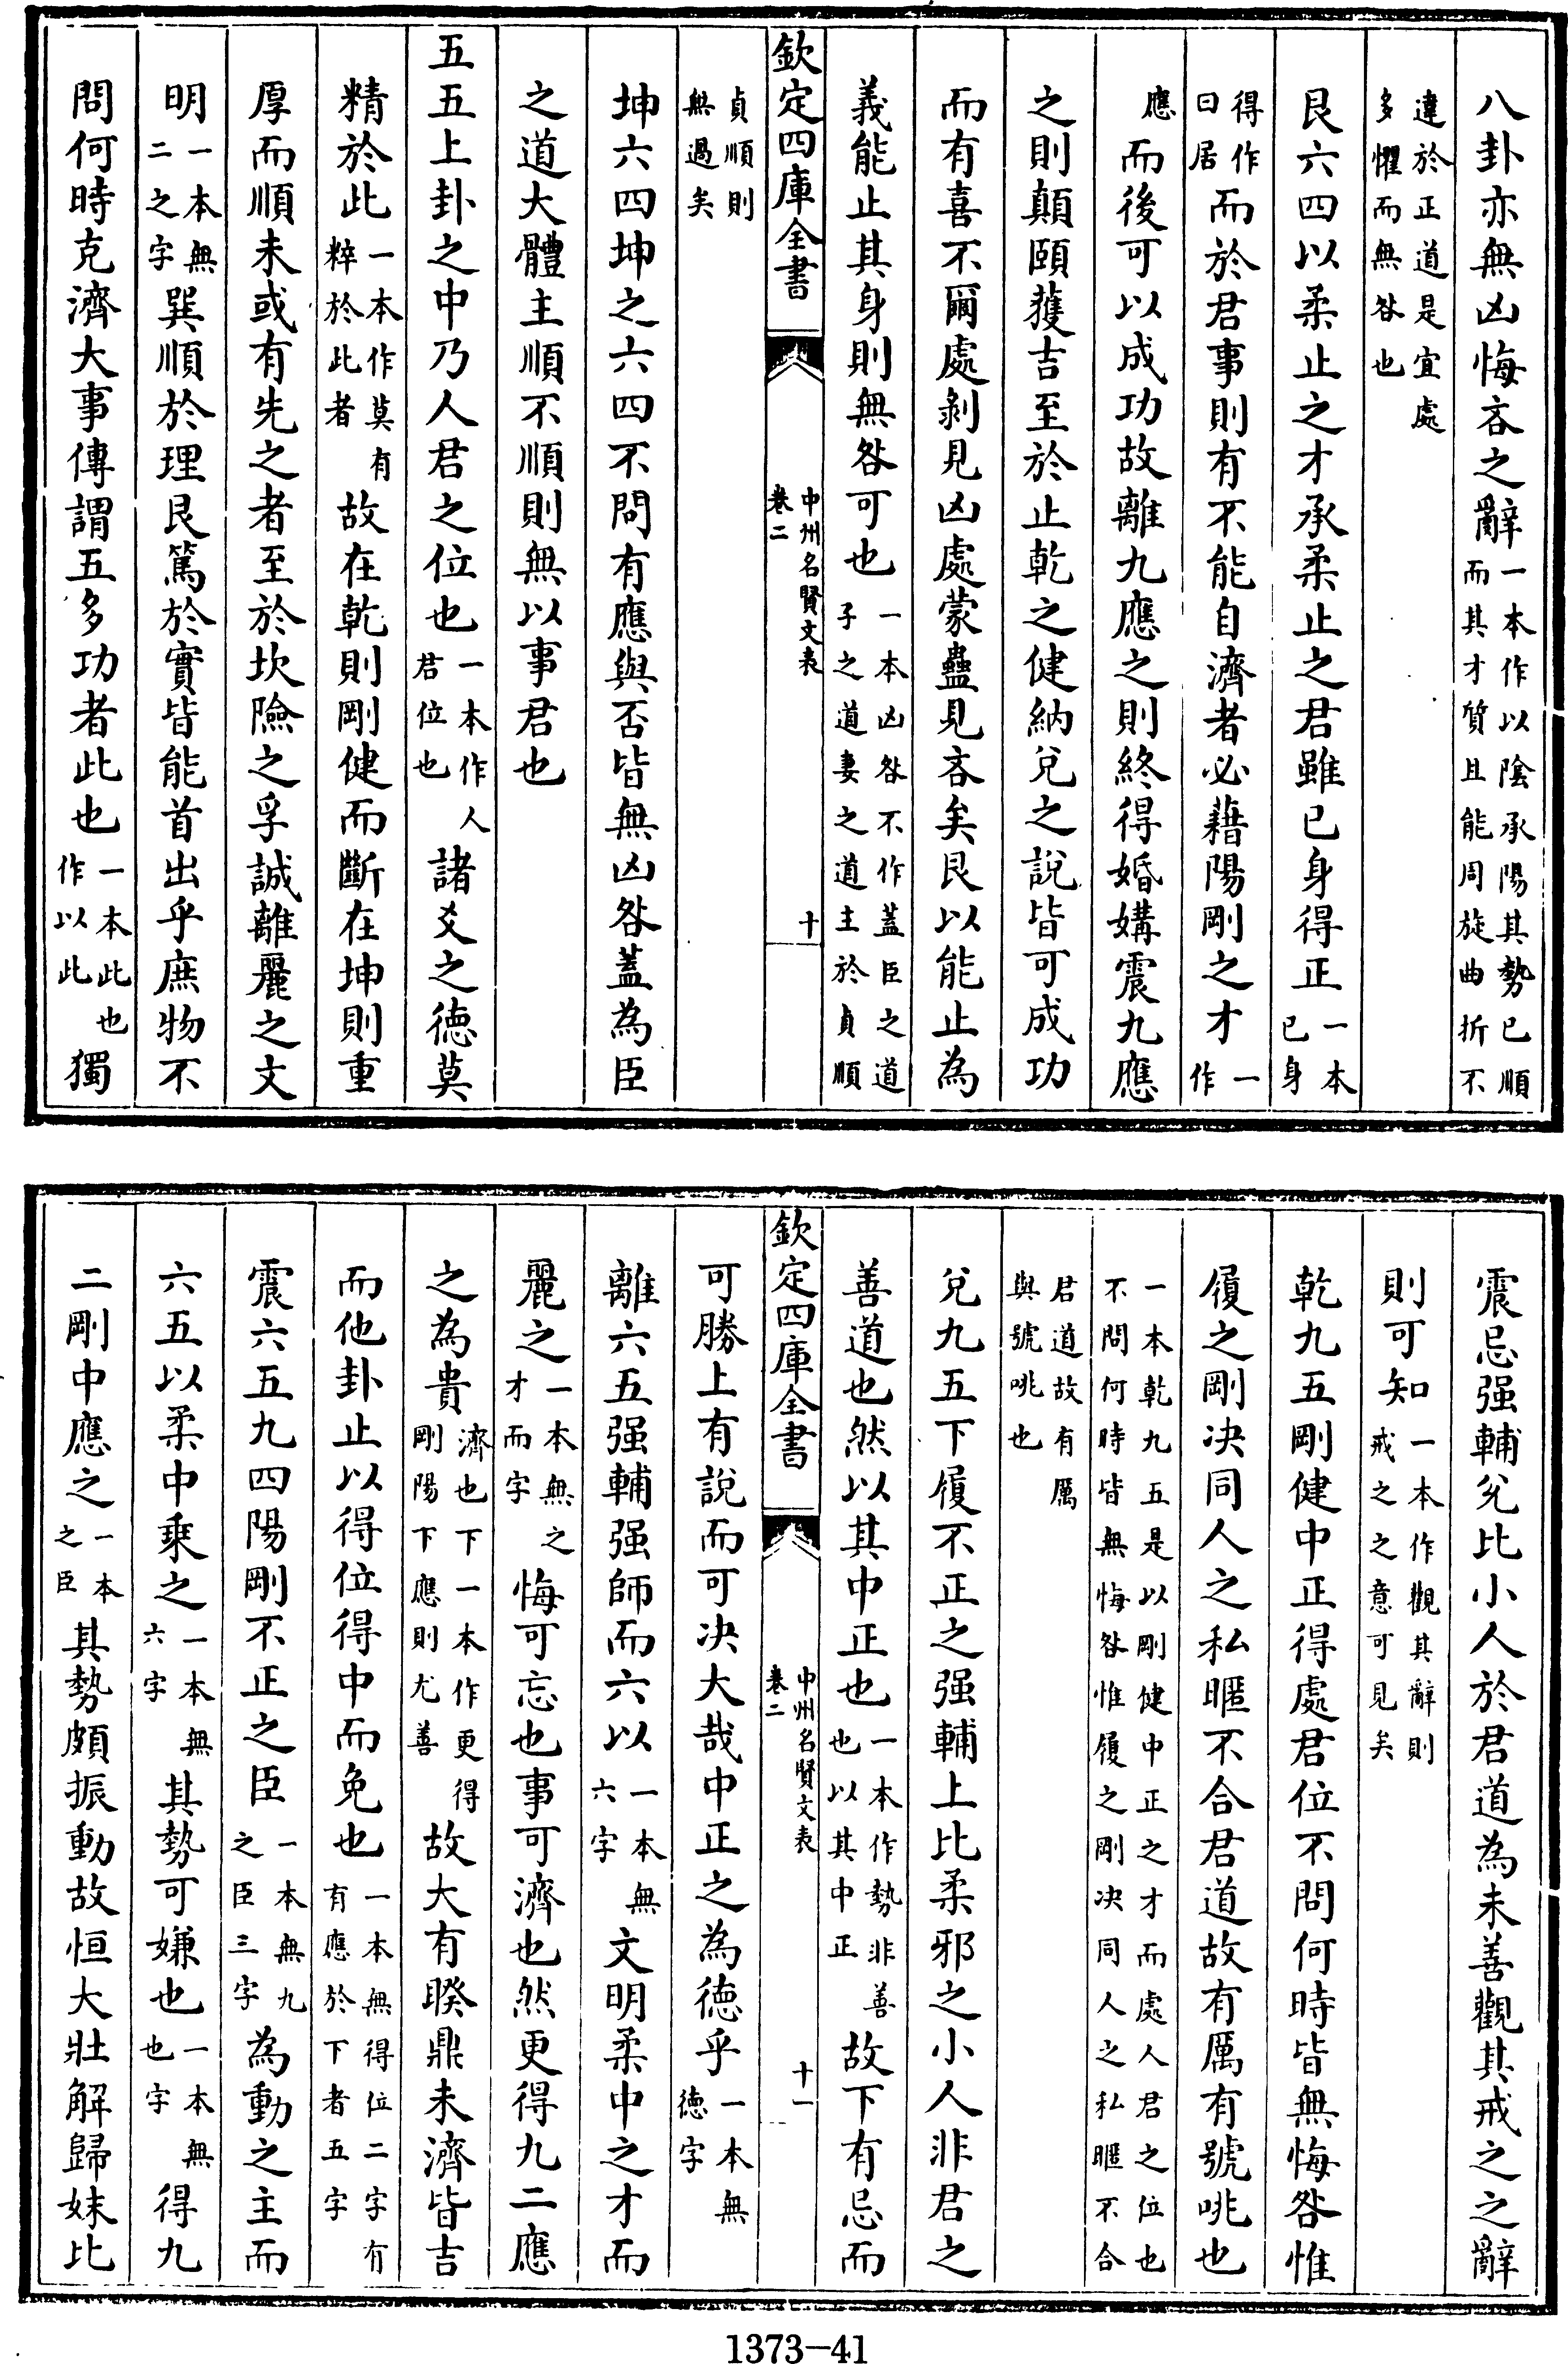 八卦亦無凶悔吝之辭一本作以陰承陽其勢已順而其才質且能周旋曲折不
違於正道是宜處多懼而無咎也
艮六四以柔止之才承柔止之君雖已身得正一本已身
得作曰居而於君事則有不能自濟者必藉陽剛之才一作
應而後可以成功故離九應之則終得婚媾震九應
之則顛頤獲吉至於止乾之健納兌之說皆可成功
而有喜不爾處剝見凶處蒙蠱見吝矣艮以能止為
義能止其身則無咎可也一本凶咎不作蓋臣之道子之道妻之道主於貞順
欽定四庫全書
中州名賢文表
卷二
十
貞順則無過矣
坤六四坤之六四不問有應與否皆無凶咎蓋為臣
之道大體主順不順則無以事君也
五五上卦之中乃人君之位也一本作人君位也諸爻之德莫
精於此一本作莫有粹於此者故在乾則剛健而斷在坤則重
厚而順未或有先之者至於坎險之孚誠離麗之文
明一本無二之字巽順於理艮篤於實皆能首出乎庶物不
問何時克濟大事傳謂五多功者此也一本此也作以此獨
震忌强輔兌比小人於君道為未善觀其戒之之辭
則可知一本作觀其辭則戒之之意可見矣
乾九五剛健中正得處君位不問何時皆無悔咎惟
履之剛決同人之私暱不合君道故有厲有號咷也
一本乾九五是以剛健中正之才而處人君之位也不問何時皆無悔咎惟履之剛決同人之私暱不合
君道故有厲與號咷也
兌九五下履不正之强輔上比柔邪之小人非君之
善道也然以其中正也一本作勢非善也以其中正故下有忌而
欽定四庫全書
中州名賢文表
卷二
十一
可勝上有說而可决大哉中正之為德乎一本無德字
離六五强輔强師而六以一本無六字文明柔中之才而
麗之一本無之才而字悔可忘也事可濟也然更得九二應
之為貴濟也下一本作更得剛陽下應則尤善故大有睽鼎未濟皆吉
而他卦止以得位得中而免也一本無得位二字有有應於下者五字
震六五九四陽剛不正之臣一本無九之臣三字為動之主而
六五以柔中乘之一本無六字其勢可嫌也一本無也字得九
二剛中應之一本之臣其勢頗振動故恒大壯解歸妹比
1373-41